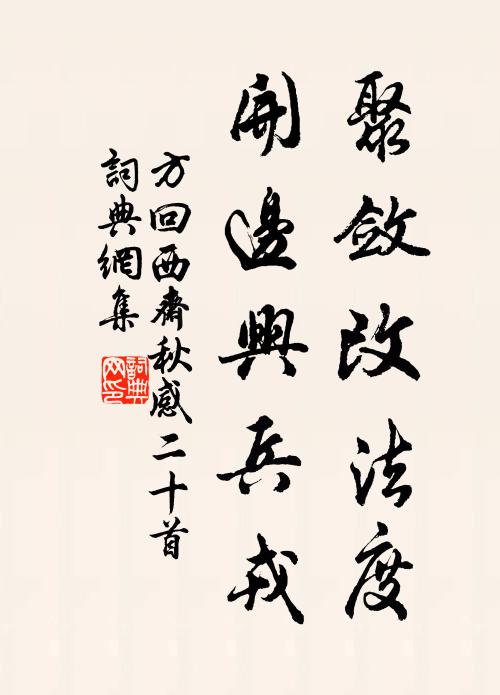 聚斂改法度
開邊興兵戎
方回西齋秋感二十首
詞典網集
詞典网印